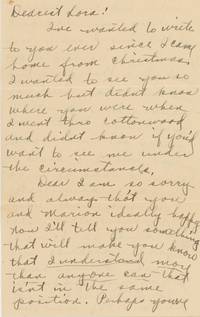 Dearest Lora!
I've wanted to write
to you ever since I came
home from Christmas.
I wanted to see you so
much but didnt know
where you were when
I went thro Cottonwood
and didnt know if you'd
want to see me under
the circumstances.
Dear I am so sorry
and always that you
and Marion ideally happy
now I'll tell you something
that will make you know
that I understand more
than anyone can that
isn't in the same
position. Perhaps you've